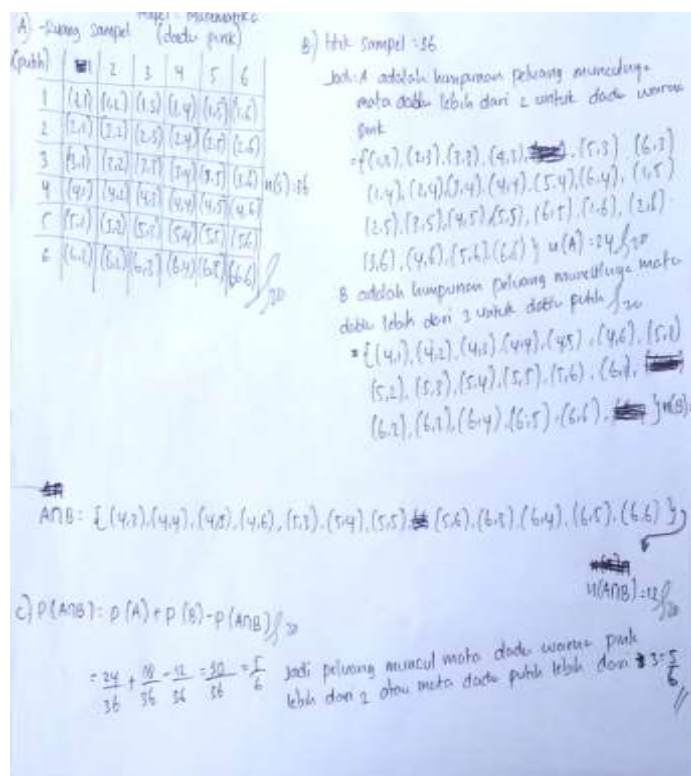 Mapel : Matematika
A) -Ruang Sampel (dadu pink)
(putih) 1 2 3 4 5 6
1 (1,1) (1,2) (1,3) (1,4) (1,5) (1,6)
2 (2,1) (2,2) (2,3) (2,4) (2,5) (2,6)
3 (3,1) (3,2) (3,3) (3,4) (3,5) (3,6) n(s)=36
4 (4,1) (4,2) (4,3) (4,4) (4,5) (4,6)
5 (5,1) (5,2) (5,3) (5,4) (5,5) (5,6)
6 (6,1) (6,2) (6,3) (6,4) (6,5) (6,6)
20
B) titik sampel = 36
Jadi A adalah himpunan peluang munculnya
mata dadu lebih dari 2 untuk dadu warna
pink
= {(1,3), (2,3), (3,3), (4,3), (5,3) (6,3)
(1,4), (2,4) (3,4), (4,4), (5,4), (6,4), (1,5)
(2,5), (3,5), (4,5), (5,5), (6,5), (1,6), (2,6)
(3,6), (4,6), (5,6), (6,6) } n(A) = 24 20
B adalah himpunan peluang munculnya mata
dadu lebih dari 3 untuk dadu putih 20
= {(4,1), (4,2), (4,3) (4,4), (4,5), (4,6), (5,1)
(5,2), (5,3), (5,4), (5,5), (5,6), (6,1),
(6,2), (6,3), (6,4), (6,5), (6,6), } n(B)=
A∩B = { (4,3), (4,4), (4,5), (4,6), (5,3), (5,4), (5,5) (5,6), (6,3) (6,4), (6,5), (6,6) }
n(A∩B) = 12 20
c) P(A∩B) = P(A) + P(B) - P(A∩B) 20
= 24/36 + 18/36 - 12/36 = 30/36 = 5/6 Jadi peluang muncul mata dadu warna pink
lebih dari 2 atau mata dadu putih lebih dari 3 = 5/6